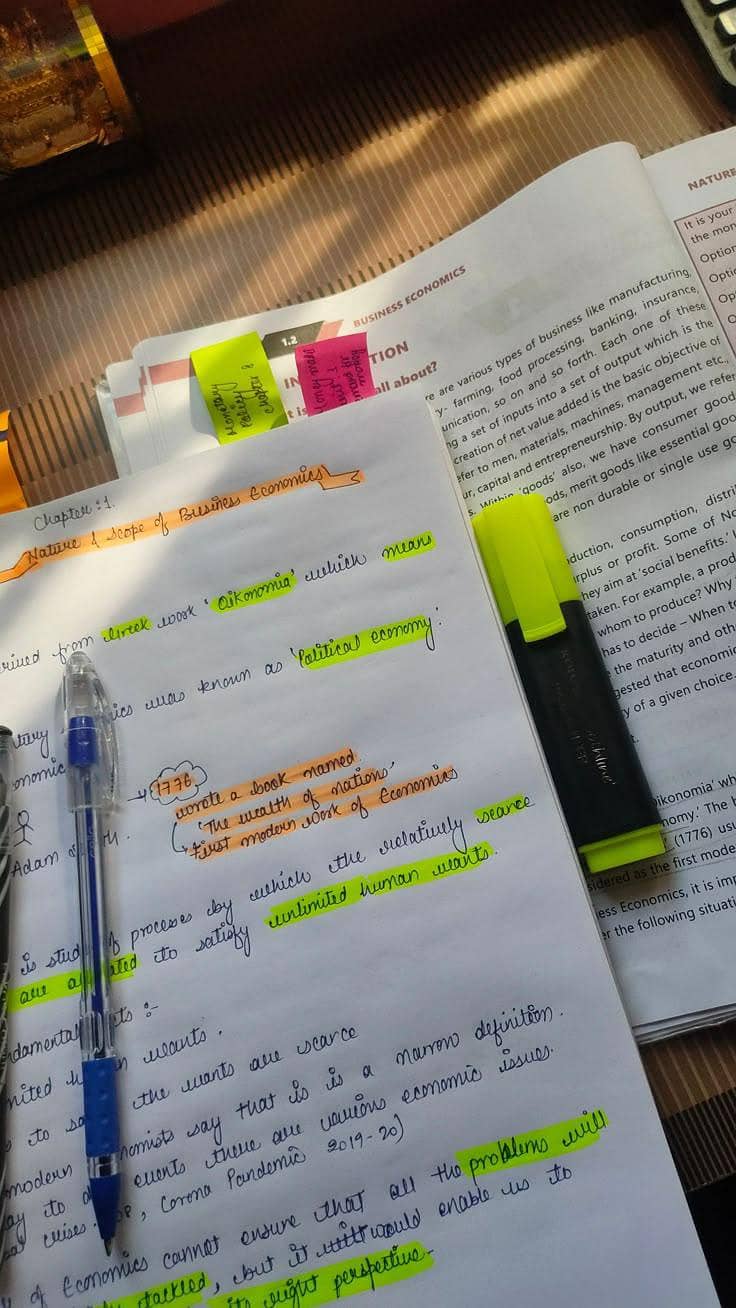 BUSINESS ECONOMICS
1.2
TION
all about?
re are various types of business like manufacturing,
y- farming, food processing, banking, insurance,
unication, so on and so forth. Each one of these
ng a set of inputs into a set of output which is the
creation of net value added is the basic objective of
efer to men, materials, machines, management etc.,
ur, capital and entrepreneurship. By output, we refer
s. Within 'goods' also, we have consumer good
ods, merit goods like essential goo
are non durable or single use go
duction, consumption, distri
rplus or profit. Some of No
hey aim at 'social benefits.'
taken. For example, a prod
whom to produce? Why
has to decide – When to
the maturity and oth
gested that economic
y of a given choice.
t.
oikonomia' wh
nomy.' The b
(1776) usu
sidered as the first mode
ess Economics, it is imp
er the following situati
NATURE
It is your
the mon
Option
Optio
Op
O
Chapter:1.
Nature & Scope of Business Economics
rived from Greek work 'Oikonomia' which means
ics was known as 'Political economy'.
onomic
1776
wrote a book named
'The wealth of nation'
first modern work of Economics
Adam
is stud of proceses by which the relatively scarce
are ated to satisfy unlimited human wants.
ndamental ts :-
nited h n wants.
s to sa the wants are scarce
modern nomists say that is is a narrow definition.
ay to events there are various economic issues.
crises , Corona Pandemic 2019-20)
of Economics cannot ensure that all the problems will
tackled, but it would enable us to
its right perspective.